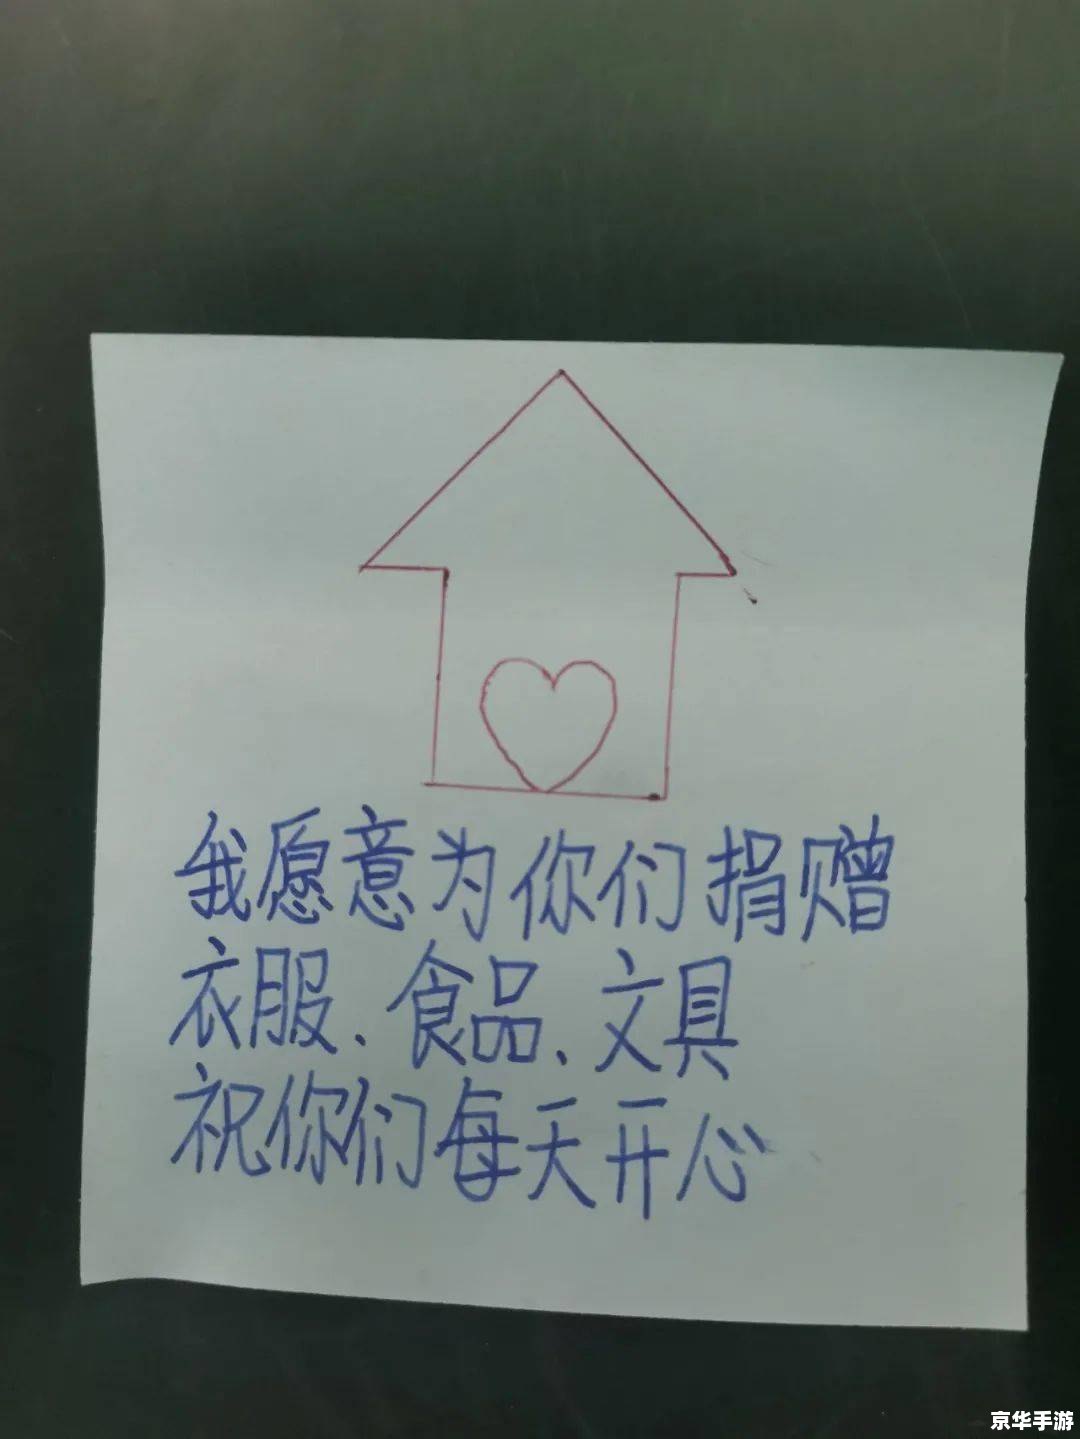 我愿意为你们捐赠
衣服、食品、文具
祝你们每天开心
京华手游